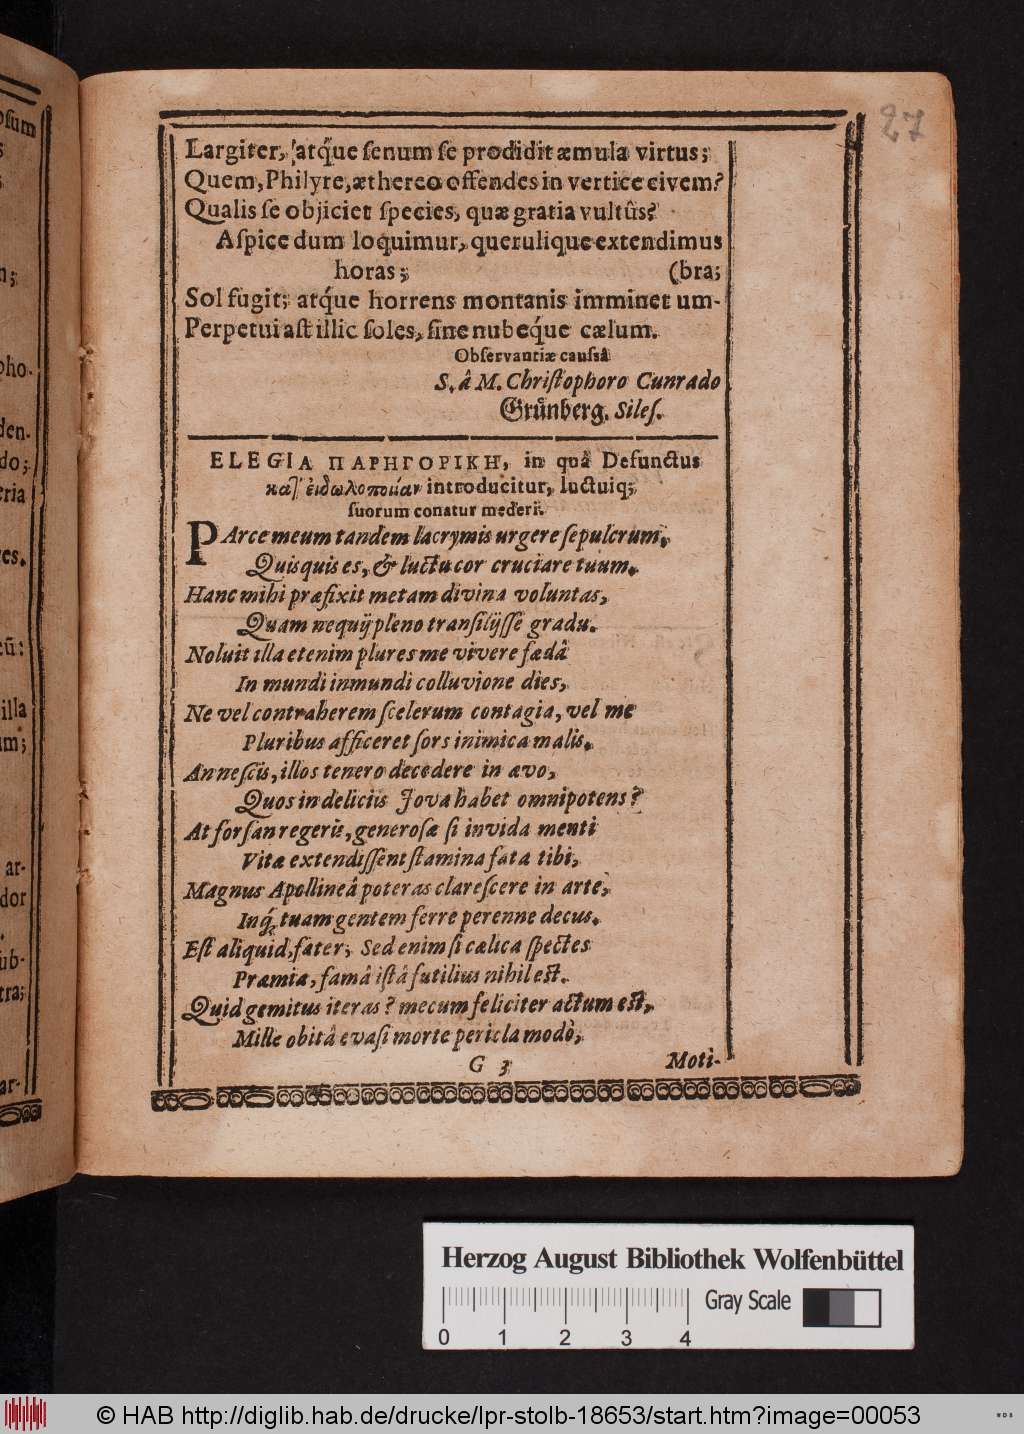 27
Largiter, atq́ue ſenum ſe prodidit æmula virtus;
Quem, Philyre, æthereo offendes in vertice civem?
Qualis ſe objiciet ſpecies, quæ gratia vultûs?
Aſpice dum loquimur, querulique extendimus
horas; (bra;
Sol fugit; atq́ue horrens montanis imminet um-
Perpetui aſt illic ſoles, ſine nubeq́ue cælum.
Obſervantiæ cauſsâ
S. â M. Chriſtophoro Cunrado
Grünberg. Sileſ.
ELEGIA ΠΑΡΗΓΟΡΙΚΗ, in quâ Defunctus
κατ' ἐιδωλοποιίαν introducitur, luctuiq;
ſuorum conatur mederi.
PArce meum tandem lacrymis urgere ſepulcrum,
Quisquis es, & luctu cor cruciare tuum.
Hanc mihi præfixit metam divina voluntas,
Quam nequij pleno tranſilijſſe gradu.
Noluit illa etenim plures me vivere fœdâ
In mundi inmundi colluvione dies,
Ne vel contraherem ſcelerum contagia, vel me
Pluribus afficeret ſors inimica malis.
An neſcis, illos tenero decedere in ævo,
Quos in deliciis Jova habet omnipotens?
At forſan regeris, generoſæ ſi invida menti
Vitæ extendiſſent ſtamina fata tibi,
Magnus Apollineâ poteras clareſcere in arte,
Inq́; tuam gentem ferre perenne decus.
Eſt aliquid, fater; Sed enim ſi cælica ſpectes
Præmia, famâ iſtâ futilius nihil eſt.
Quid gemitus iteras? mecum feliciter actum eſt,
Mille obitâ evaſi morte pericla modò,
G 3 Moti-
Herzog August Bibliothek Wolfenbüttel
Gray Scale
0 1 2 3 4
© HAB http://diglib.hab.de/drucke/lpr-stolb-18653/start.htm?image=00053